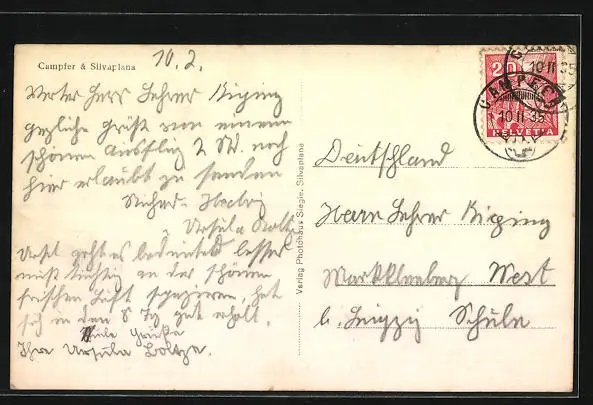 Campfer & Silvaplana
10.2.
Werter Herr Lehrer Kieping
herzliche Grüße von einem
schönen Ausflug 2 W. noch
hier erlaubt zu senden
Ursula Boltze
Ursel geht es bedeutend besser
muß tüchtig in der schönen
frischen Luft spazieren, hat
sich in den 8 Tg gut erholt.
Viele Grüße
Ihre Ursula Boltze.
Verlag Photohaus Siegler, Silvaplana
20
HELVETIA
CAMPFER
10 II 35
Deutschland
Herrn Lehrer Kieping
Markkleeberg West
b. Leipzig Schule